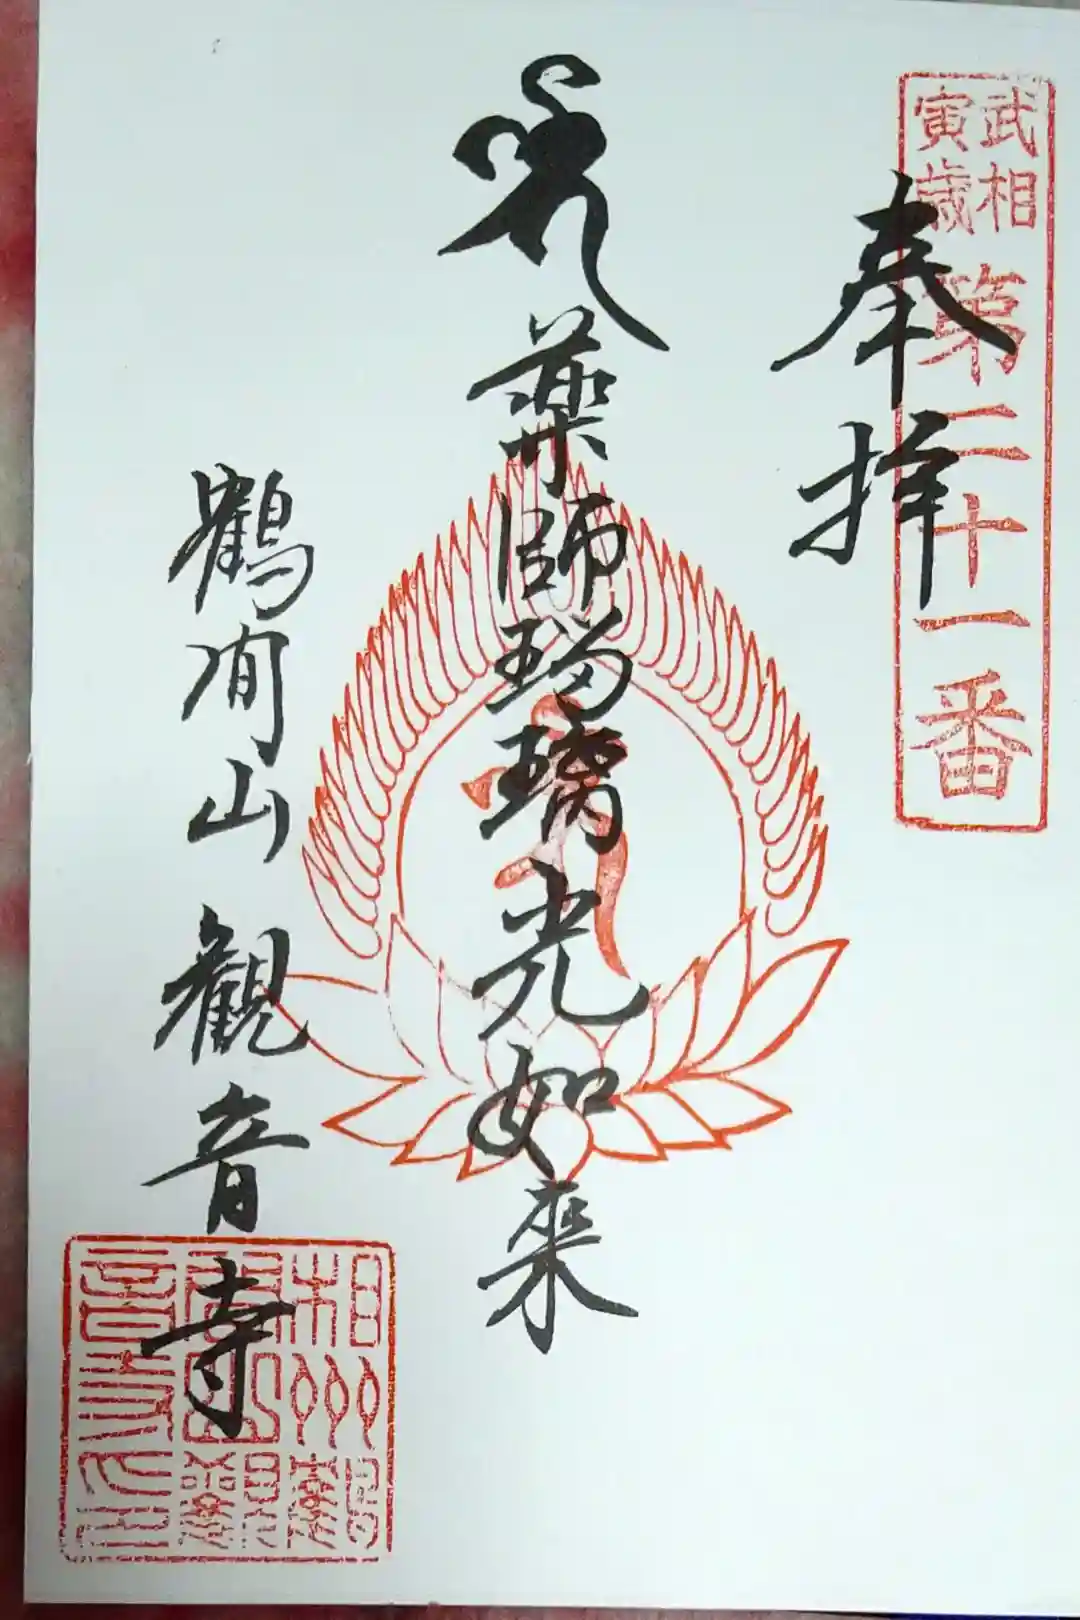 武相
寅歳
第二十一番
奉拝
薬師瑠璃光如来
鶴間山 観音寺